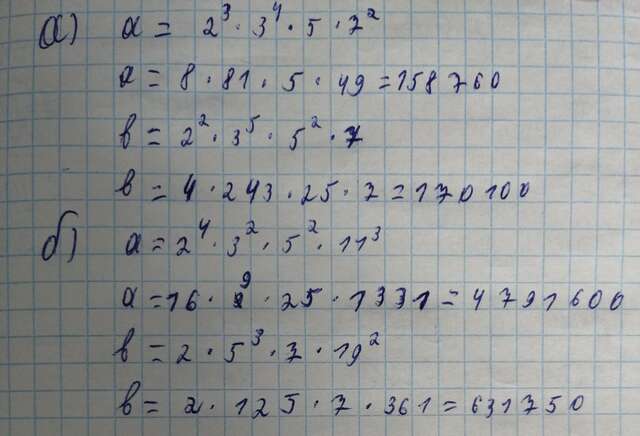 а) a = 2³ · 3⁴ · 5 · 7²
a = 8 · 81 · 5 · 49 = 158760
b = 2² · 3⁵ · 5² · 7
b = 4 · 243 · 25 · 7 = 170100
б) a = 2⁴ · 3² · 5² · 11³
a = 16 · 9 · 25 · 1331 = 4791600
b = 2 · 5³ · 7 · 19²
b = 2 · 125 · 7 · 361 = 631750